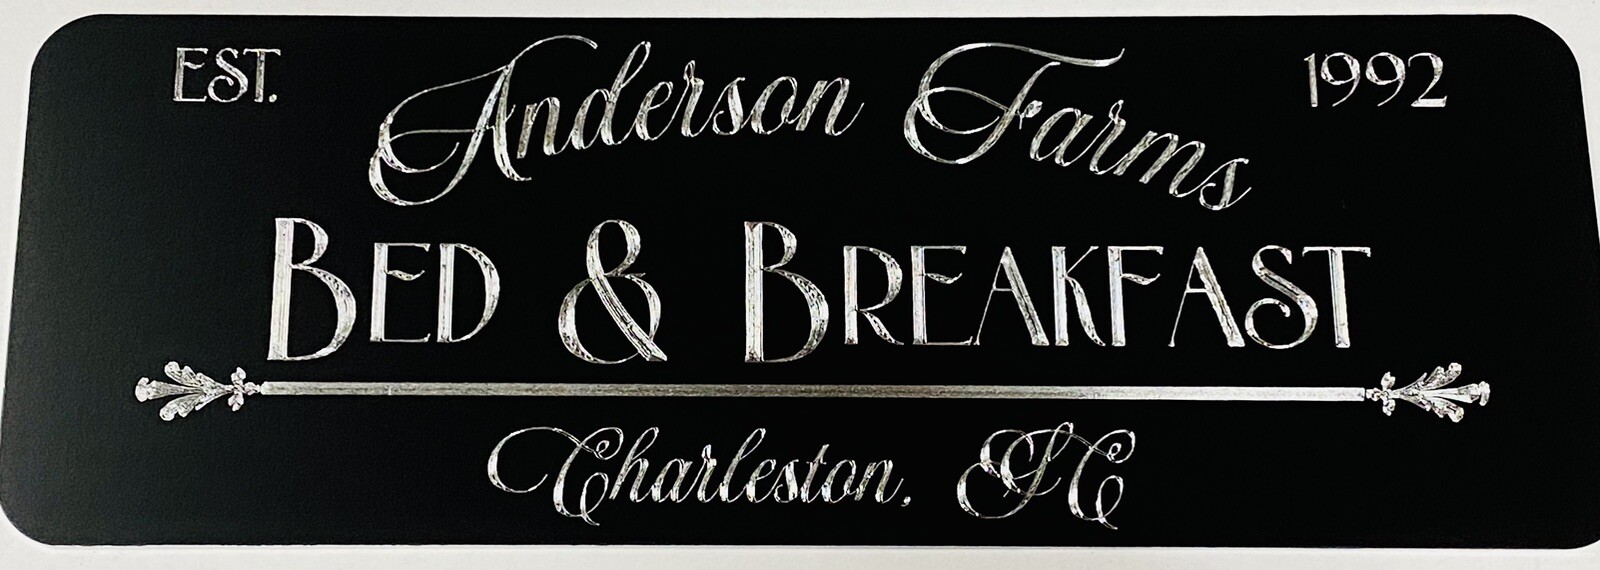 EST. Anderson Farms 1992
BED & BREAKFAST
Charleston, SC